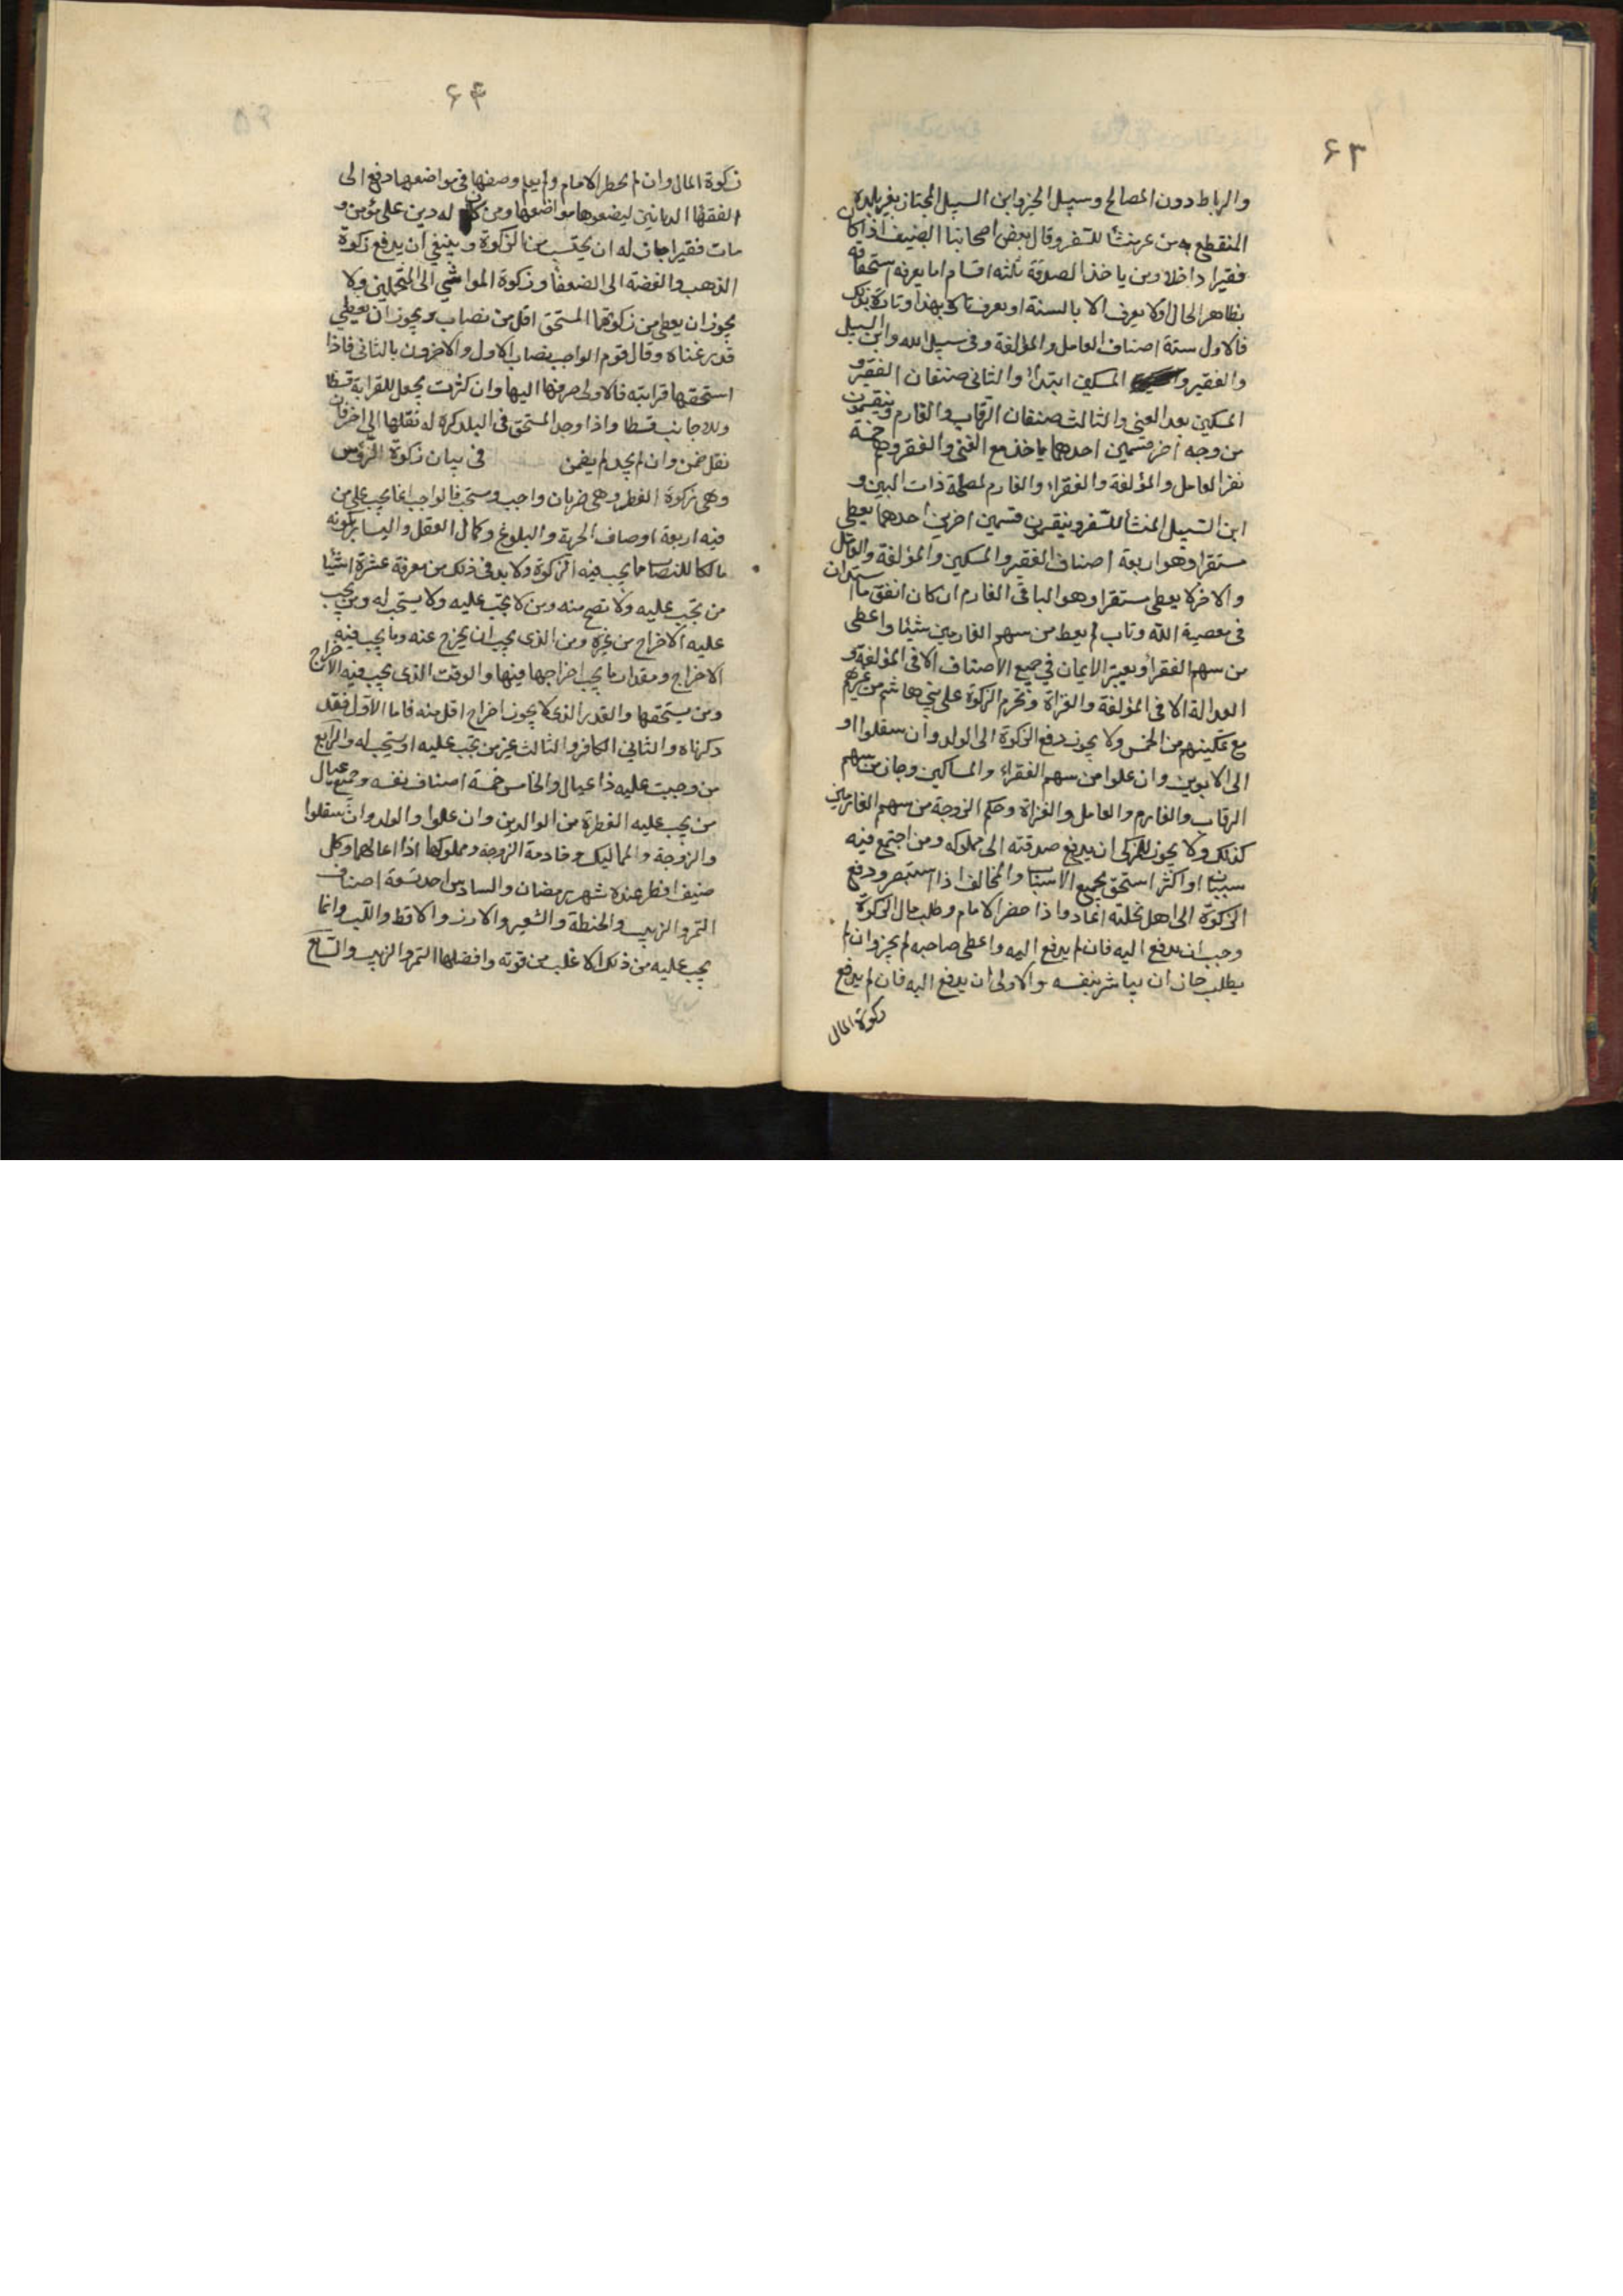 ۶۳
والرباط دون المصالح وسبيل الخير وابن السبيل المجتاز بغير بلده
المنقطع به من غير منشأ للسفر وقال بعض اصحابنا الضيف اذا كان
فقيرا داخلا ومن ياخذ الصدقة ثلثه اقسام اما يعرف استحقاقه
بظاهر الحال اولا يعرف الا بالبينة او يعرف تارة بهذا وتارة بذلك
فالاول ستة اصناف العامل والمؤلفة وفى سبيل الله وابن السبيل
والفقير و المسكين ابتداء والثانى صنفان الفقير و
المسكين بعد الغنى والثالث صنفان الرقاب والغارم وينقسمون
من وجه اخر قسمين احدهما ياخذ مع الغنى والفقر وهم خمسة
نفر العامل والمؤلفة والغزاة والغارم لمصلحة ذات البين و
ابن السبيل المنشأ للسفر وينقسمون قسمين اخرين احدهما يعطى
مستقرا وهو اربعة اصناف الفقير والمسكين والمؤلفة والعامل
والاخر لا يعطى مستقرا وهو الباقى الغارم ان كان انفق ما استدان
فى معصية الله وتاب لم يعط من سهم الغارمين شيئا واعطى
من سهم الفقرا ويعتبر الايمان فى جميع الاصناف الا فى المؤلفة و
العدالة الا فى المؤلفة والغزاة وتحرم الزكوة على بنى هاشم من غيرهم
مع تمكينهم من الخمس ولا يجوز دفع الزكوة الى الولد وان سفلوا او
الى الابوين وان علوا من سهم الفقراء والمساكين وجاز من سهم
الرقاب والغارم والعامل والغزاة وحكم الزوجة من سهم الغارمين
كذلك ولا يجوز للمزكى ان يدفع صدقته الى مملوكه ومن اجتمع فيه
سببان او اكثر استحق بجميع الاسباب والمخالف اذا استبصر ودفع
الزكوة الى اهل نحلته اعاد واذا حضر الامام وطلب مال الزكوة
وجب ان يدفع اليه فان لم يدفع اليه واعطى صاحبه لم يجز وان لم
يطلب جاز ان يباشر بنفسه والاولى ان يدفع اليه فان لم يدفع
زكوة المال
۶۴
زكوة المال وان لم يحضر الامام ولم يعلم وصفها فى مواضعها دفع الى
الفقها الديانين ليضعوها مواضعها ومن كان له دين على مؤمن و
مات فقيرا جاز له ان يحتسب من الزكوة وينبغى ان يدفع زكوة
الذهب والفضة الى الضعفا وزكوة المواشى الى المتجملين ولا
يجوز ان يعطى من زكوتهما المستحق اقل من نصاب ويجوز ان يعطى
قدر غناه وقال قوم الواجب نصاب الاول والاخرون بالثانى فاذا
استحقها قرابته فالاولى صرفها اليها وان كثرت يجعل للقرابة قسطا
وللاجانب قسطا واذا وجد المستحق فى البلد كره له نقلها الى اخر فان
نقل ضمن وان لم يجد لم يضمن فى بيان زكوة الرؤس
وهى زكوة الفطر وهى ضربان واجب ومستحب فالواجب انما يجب على من
فيه اربعة اوصاف الحرية والبلوغ وكمال العقل واليسار بكونه
مالكا للنصاب مما يجب فيه الزكوة ولا بد فى ذلك من معرفة عشرة اشيا
من تجب عليه ولا تصح منه ومن لا يجب عليه ولا يستحب له ومن يجب
عليه الاخراج من غيره ومن الذى يجب ان يخرج عنه وما يجب فيه
الاخراج ومقدار ما يجب اخراجها فيها والوقت الذى يجب فيه الاخراج
ومن يستحقها والقدر الذى لا يجوز اخراج اقل منه فاما الاول فقد
ذكرناه والثانى الكافر والثالث غير من تجب عليه او يستحب له والرابع
من وجبت عليه ذا عيال والخامس خمسة اصناف نفسه وجميع عيال
من يجب عليه الفطرة من الوالدين وان علوا والولد وان سفلوا
والزوجة والمماليك وخادمة الزوجه ومملوكها اذا اعالهما وكل
ضيف افطر عنده شهر رمضان والسادس احد تسعة اصناف
التمر والزبيب والحنطة والشعير والارز والاقط واللبن وانما
يجب عليه من ذلك الاغلب من قوته وافضلها التمر والزبيب والسابع